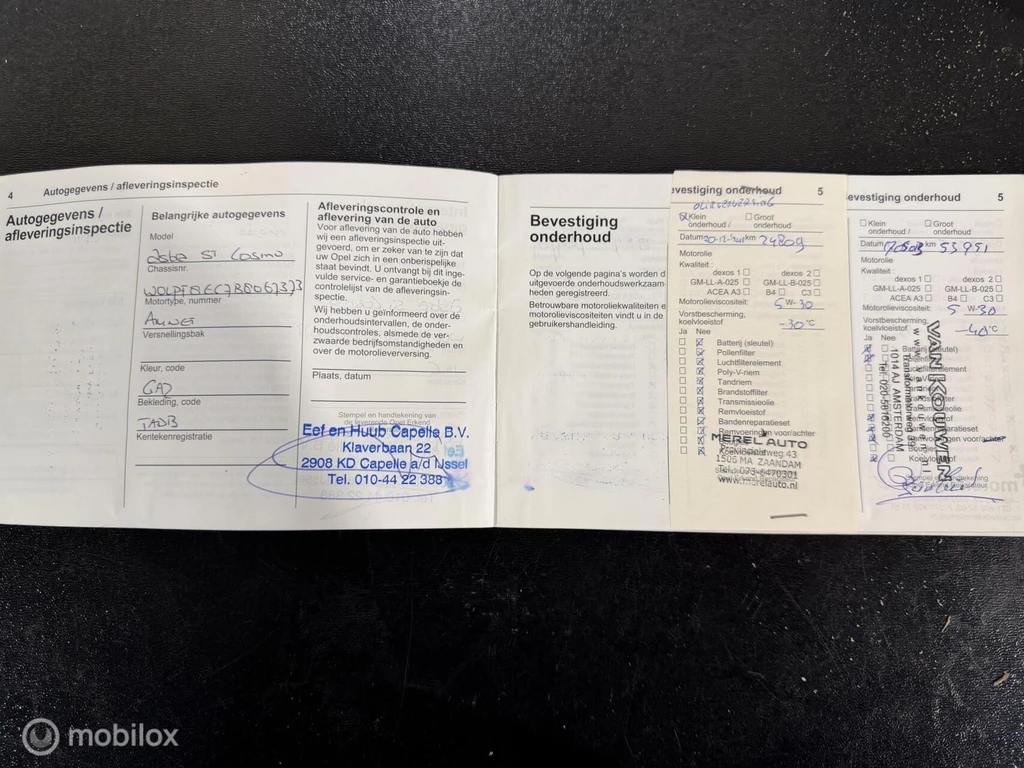 4
Autogegevens / afleveringsinspectie
Autogegevens /
afleveringsinspectie
Belangrijke autogegevens
Model
Astra ST Cosmo
Chassisnr.
Motortype, nummer
Versnellingsbak
Kleur, code
GAZ
Bekleding, code
TADB
Kentekenregistratie
Afleveringscontrole en
aflevering van de auto
Voor aflevering van de auto hebben
wij een afleveringsinspectie uit-
gevoerd, om er zeker van te zijn dat
uw Opel zich in een onberispelijke
staat bevindt. U ontvangt bij dit inge-
vulde service- en garantieboekje de
controlelijst van de afleveringsin-
spectie.
Wij hebben u geïnformeerd over de
onderhoudsintervallen, de onder-
houdscontroles, alsmede de ver-
zwaarde bedrijfsomstandigheden en
over de motorolieverversing.
Plaats, datum
Stempel en handtekening van
de leverende Opel Erkend
Eef en Huub Capelle B.V.
Klaverbaan 22
2908 KD Capelle a/d IJssel
Tel. 010-44 22 388
Bevestiging
onderhoud
Op de volgende pagina's worden d
uitgevoerde onderhoudswerkzaam-
heden geregistreerd.
Betrouwbare motoroliekwaliteiten e
motorolieviscositeiten vindt u in de
gebruikershandleiding.
evestiging onderhoud 5
Klein
onderhoud /
Groot
onderhoud
Datum km 24809
Motorolie
Kwaliteit :
dexos 1 dexos 2
GM-LL-A-025 GM-LL-B-025
ACEA A3 B4 C3
Motorolieviscositeit: 5 W-30
Vorstbescherming,
koelvloeistof -30°C
Ja Nee
Batterij (sleutel)
Pollenfilter
Luchtfilterelement
Poly-V-riem
Tandriem
Brandstoffilter
Transmissieolie
Remvloeistof
Bandenreparatieset
Remvoeringen voor/achter
Koelvloeistof
MEREL AUTO
weg 43
1506 MA ZAANDAM
Tel.: 075-6470301
www.merelauto.nl
evestiging onderhoud 5
Klein
onderhoud /
Groot
onderhoud
Datum km 53951
Motorolie
Kwaliteit :
dexos 1 dexos 2
GM-LL-A-025 GM-LL-B-025
ACEA A3 B4 C3
Motorolieviscositeit: 5 W-30
Vorstbescherming,
koelvloeistof -40°C
Ja Nee
Batterij (sleutel)
Luchtfilterelement
Bandenreparatieset
voor/achter
VAN KOUWEN
1014 AJ AMSTERDAM
mobilox